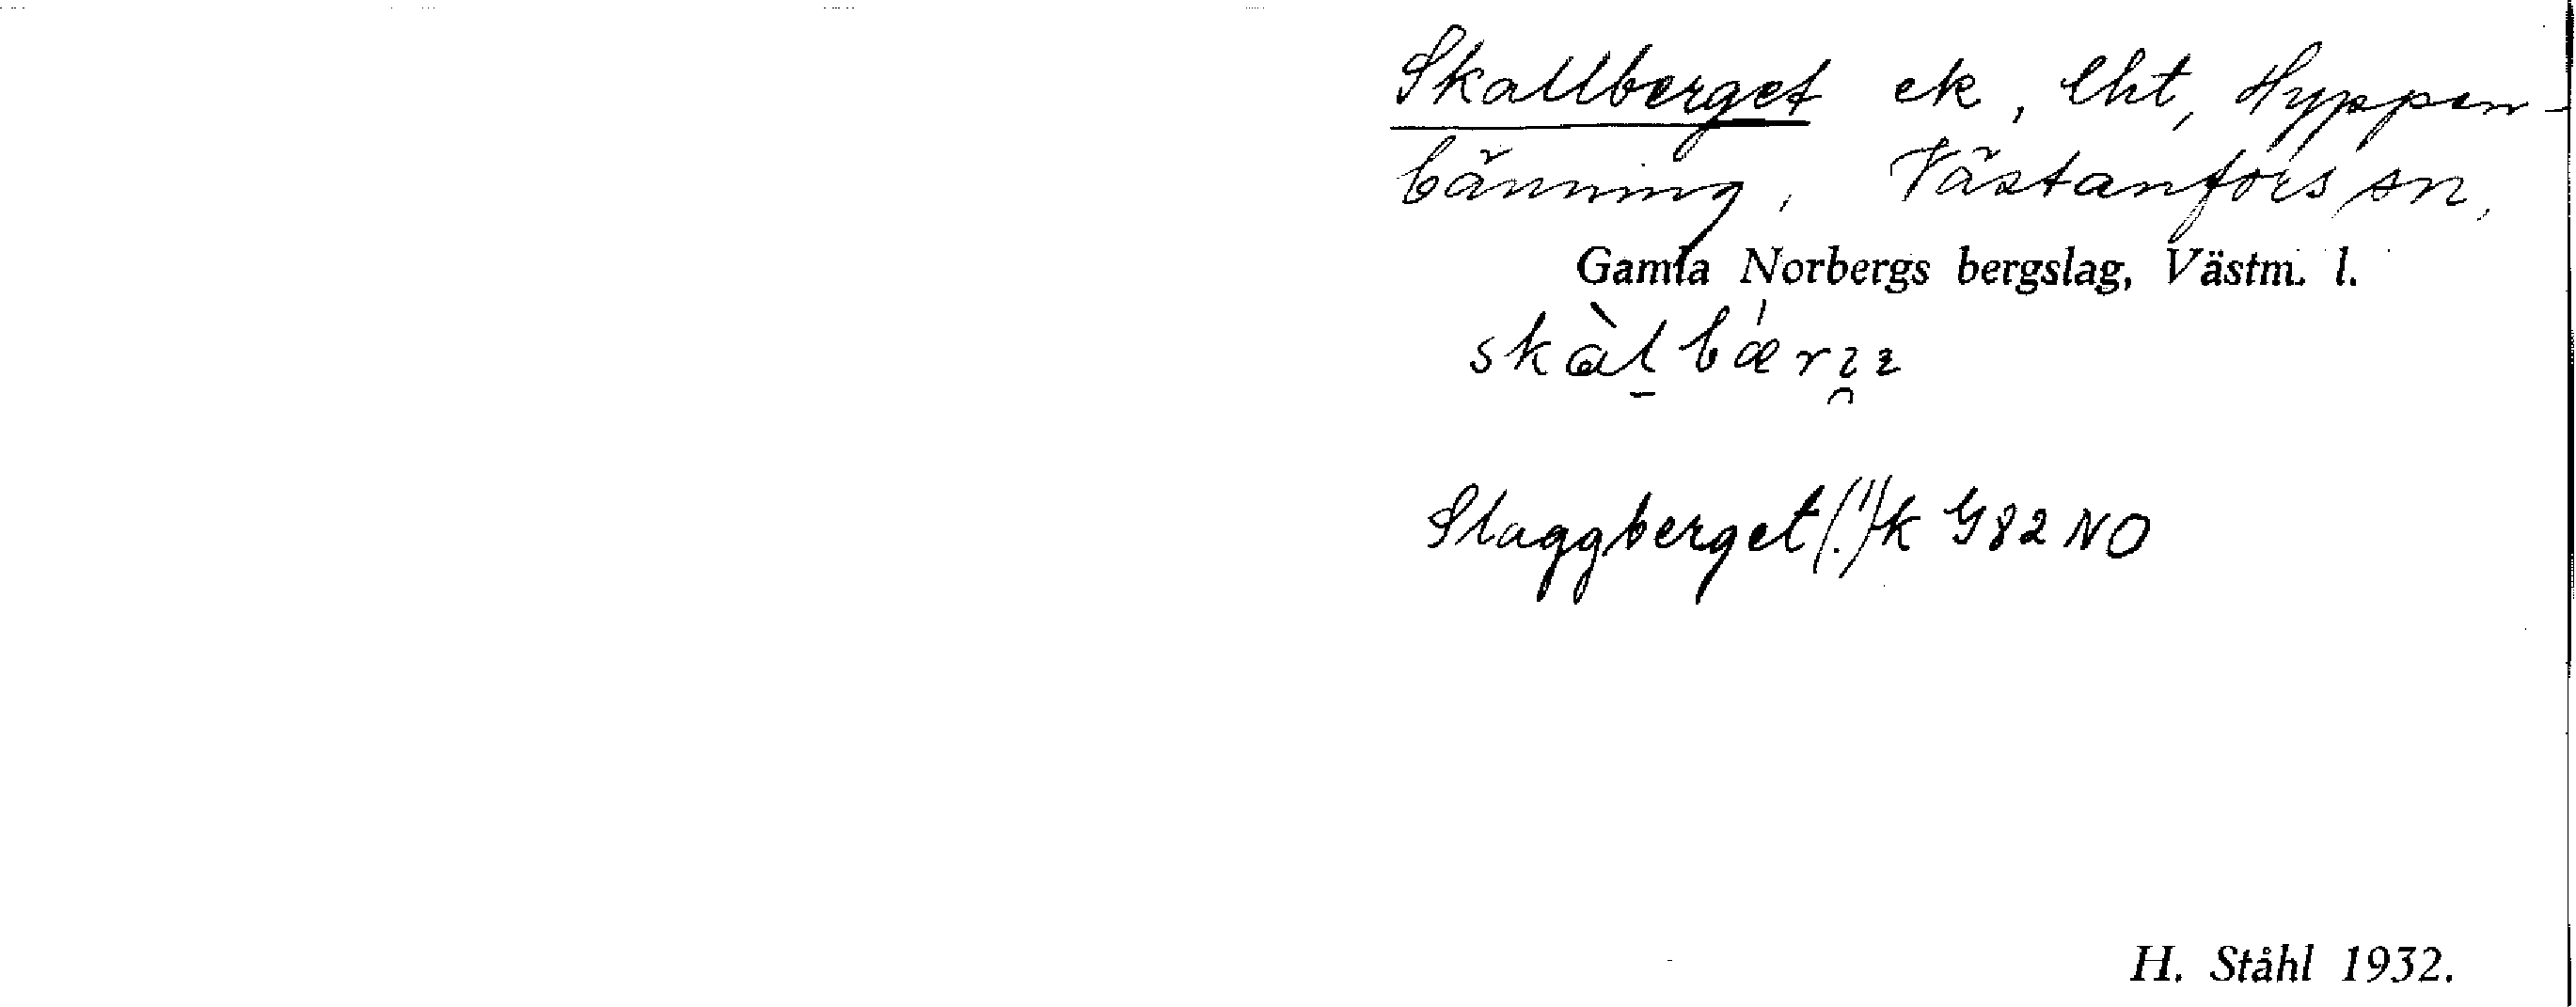 Skallberget ek, lht, Hyppen-
bänning, Västanfors sn,
Gamla Norbergs bergslag, Västm. l.
skàl̠bǽrı̯ɪ
Slaggberget (!) k G82 NO
H. Ståhl 1932.